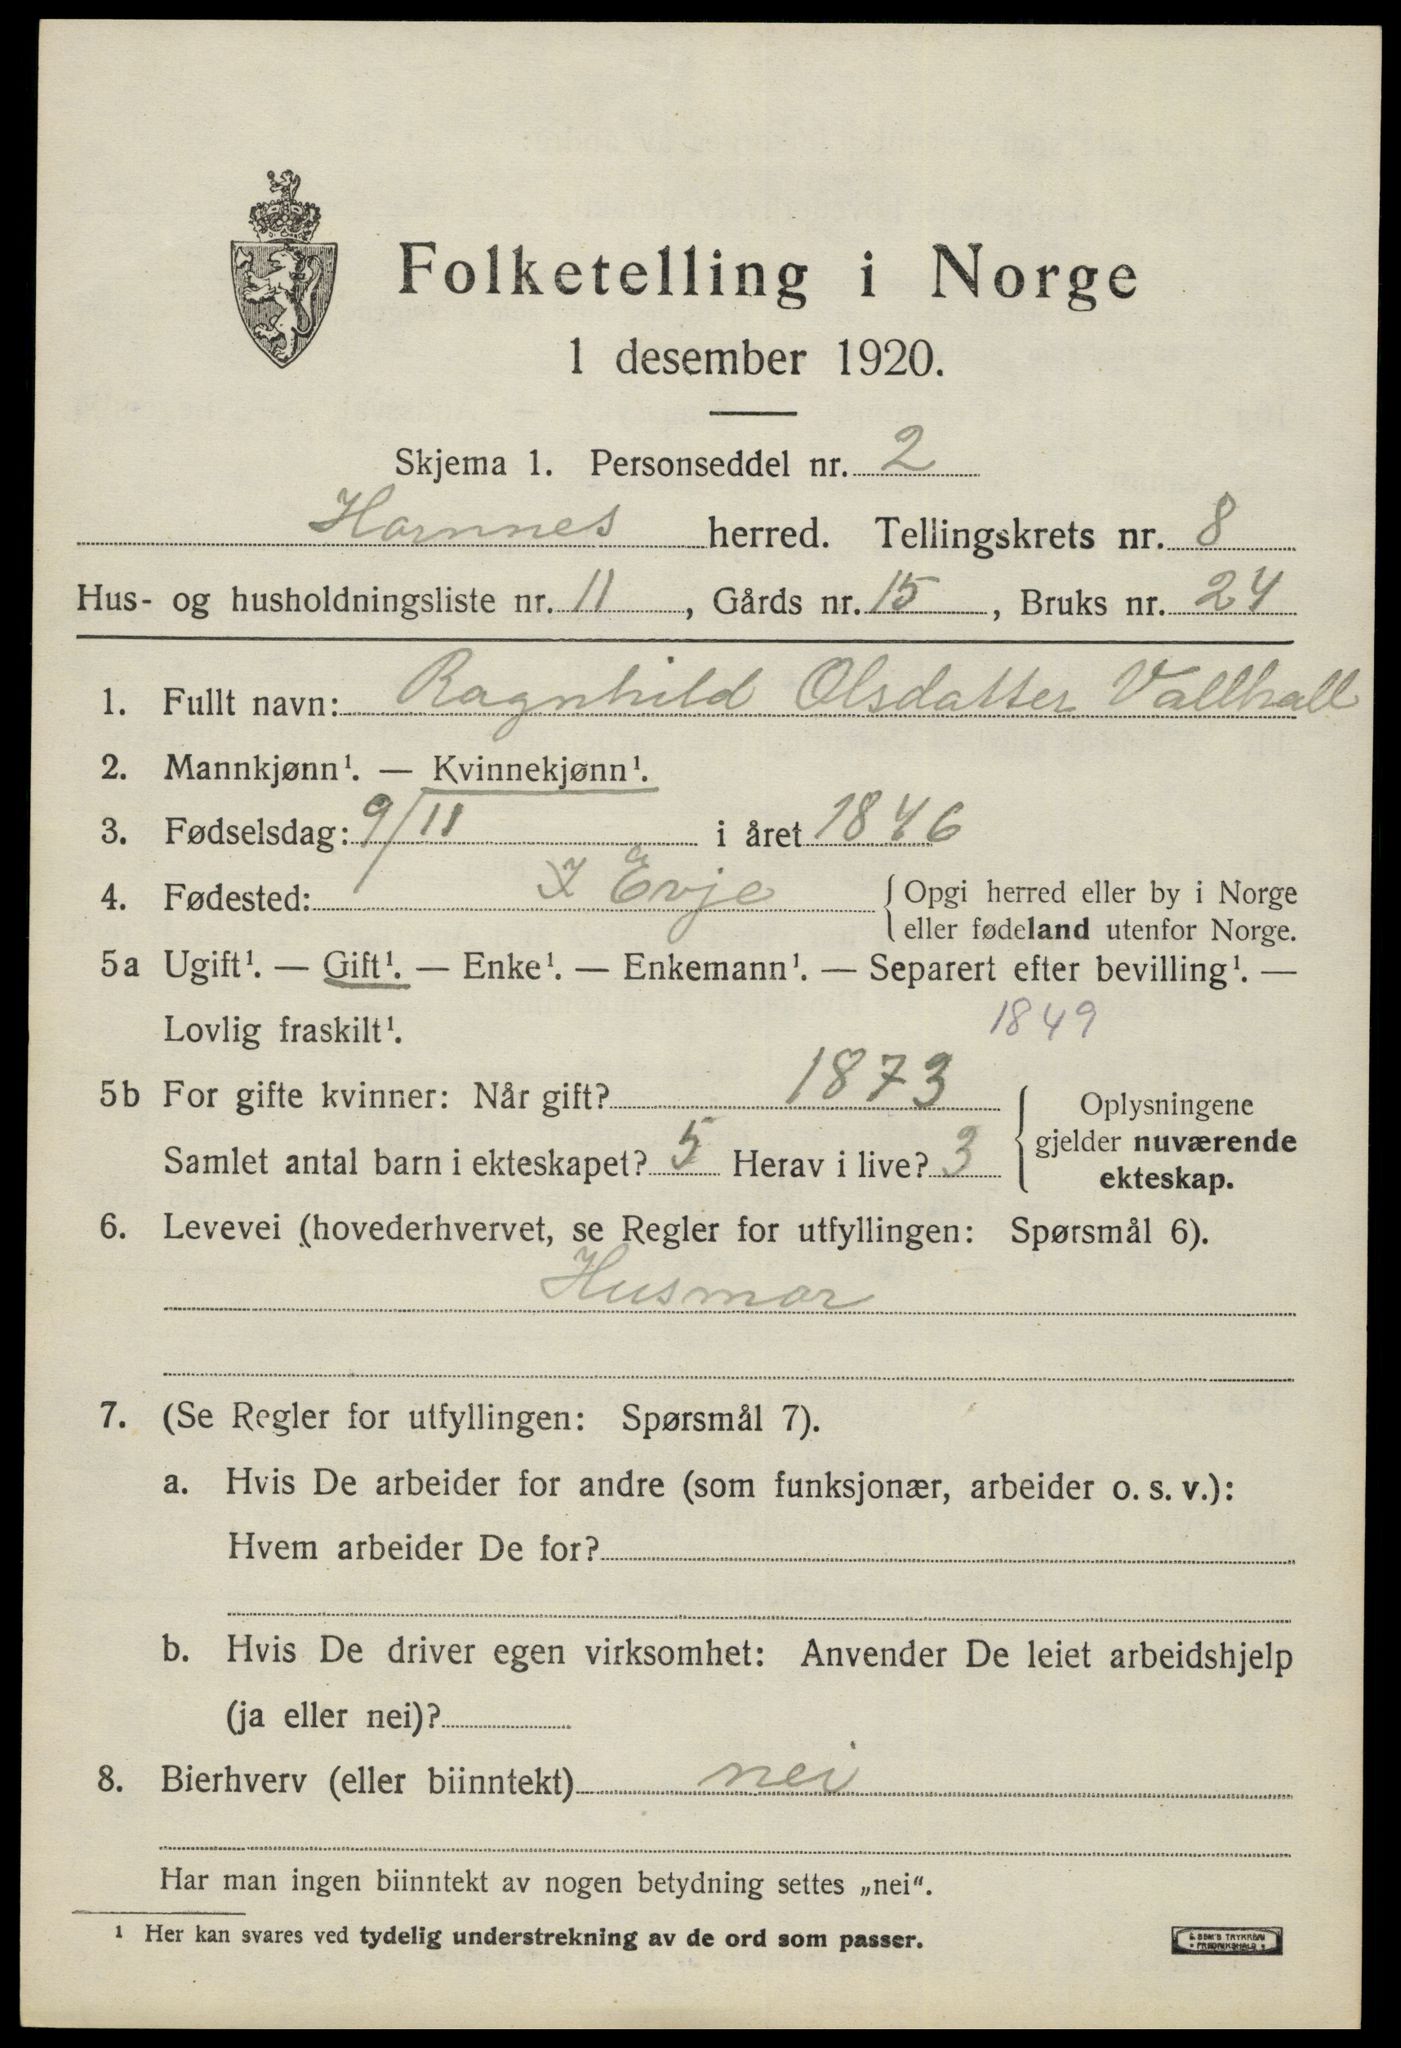 Folketelling i Norge
1 desember 1920.
Skjema 1. Personseddel nr. 2
Hornnes herred. Tellingskrets nr. 8
Hus- og husholdningsliste nr. 11, Gårds nr. 15, Bruks nr. 24
1. Fullt navn: Ragnhild Olsdatter Vallhall
2. Mannkjønn¹. — Kvinnekjønn¹.
3. Fødselsdag: 9/11 i året 1846
4. Fødested: I Evje { Opgi herred eller by i Norge
eller fødeland utenfor Norge.
5a Ugift¹. — Gift¹. — Enke¹. — Enkemann¹. — Separert efter bevilling¹. —
Lovlig fraskilt¹. 1849
5b For gifte kvinner: Når gift? 1873
Samlet antal barn i ekteskapet? 5 Herav i live? 3
{ Oplysningene
gjelder nuværende
ekteskap.
6. Levevei (hovederhvervet, se Regler for utfyllingen: Spørsmål 6).
Husmor
7. (Se Regler for utfyllingen: Spørsmål 7).
a. Hvis De arbeider for andre (som funksjonær, arbeider o. s. v.):
Hvem arbeider De for?
b. Hvis De driver egen virksomhet: Anvender De leiet arbeidshjelp
(ja eller nei)?
8. Bierhverv (eller biinntekt) nei
Har man ingen biinntekt av nogen betydning settes „nei“.
¹ Her kan svares ved tydelig understrekning av de ord som passer.